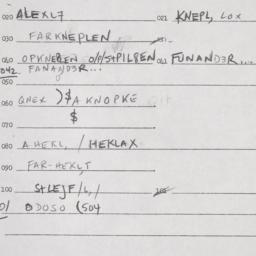 020 ALEXL7 021 KNEPL, LOX
030 FARKNEPLEN
040 OPKNEBEN O/H/S+PILBEN 041 FUNANDER...
042 FANAND3R...
050
060 QHEX )$A KNOPKE
070 $
080 A.HEKL, / HEKLAX
090 FAR-HEKLT
100 S+LEJF/L,/
0/ ODOSO (504